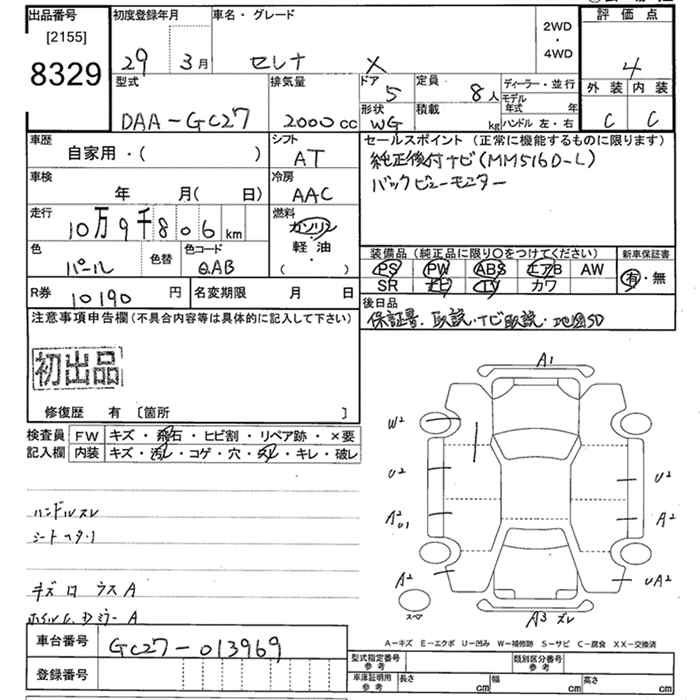 出品番号 初度登録年月 車名・グレード 評価点
[2155]
8329
29 3月 セレナ X 2WD・4WD 4
型式 排気量 ドア 定員 ディーラー・並行 外装 内装
DAA-GC27 2000cc 5 8人 モデル年式 年 C C
形状 積載
WG kg ハンドル 左・右
車歴 シフト セールスポイント (正常に機能するものに限ります)
自家用・( ) AT 純正後付ナビ(MM516D-L)
バックビューモニター
車検 冷房
年 月( 日) AAC
走行 燃料
10万9千806km ガソリン
軽油
( )
色 色替 色コード
パール QAB
装備品 (純正品に限り○をつけてください) 新車保証書
PS PW ABS エアB AW 有・無
SR ナビ TV カワ
R券 10190円 名変期限 月 日
後日品
保証書、取説、ナビ取説、地図SD
注意事項申告欄(不具合内容等は具体的に記入して下さい)
初出品
修復歴 有 〔箇所 〕
検査員 FW キズ・飛石・ヒビ割・リペア跡・×要
記入欄 内装 キズ・汚レ・コゲ・穴・ キレ・破レ
ハンドルスレ
シートヘタリ
A1
W2
U2 U2
A2 U1 A2
A2 UA2
スペア
A3 ズレ
A-キズ E-エクボ U-凹み W-補修跡 S-サビ C-腐食 XX-交換済
車台番号 GC27-013969
登録番号
型式指定番号 参考 類別区分番号 参考
車庫証明用 参考 長さ cm 幅 cm 高さ cm